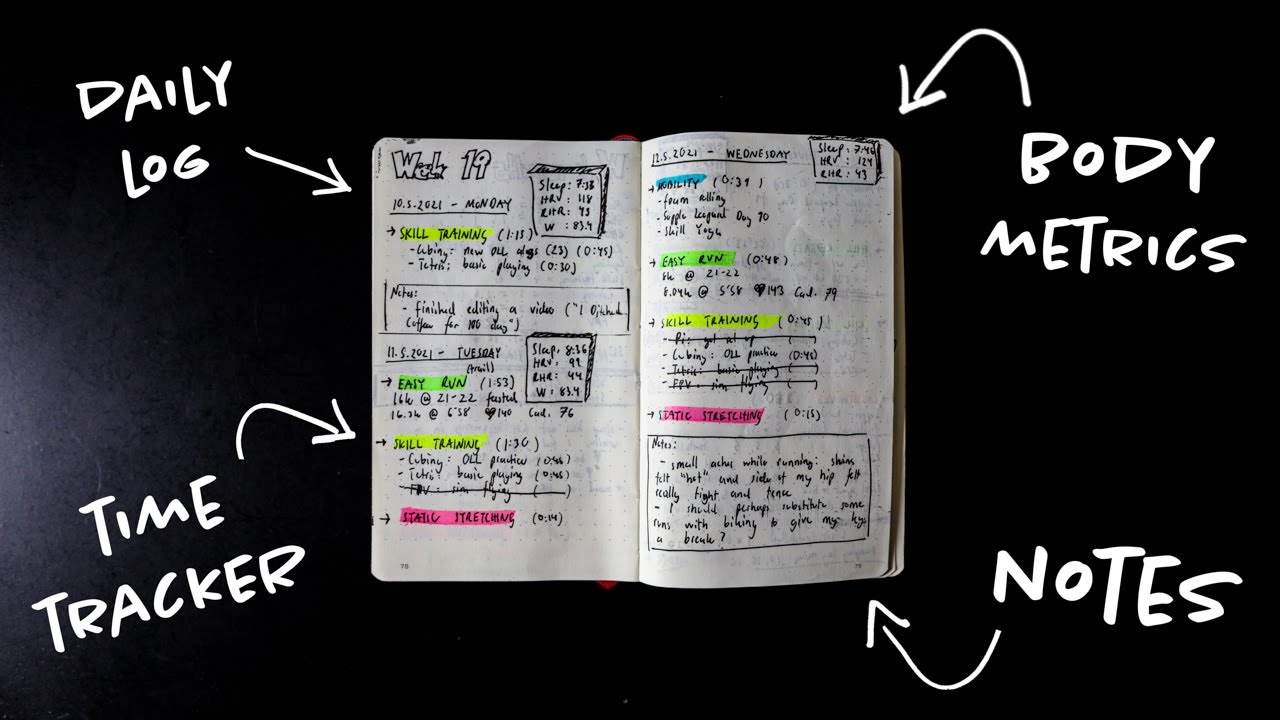 DAILY
LOG
TIME
TRACKER
BODY
METRICS
NOTES
Week 19
Sleep: 7:38
HRV: 118
RHR: 43
W: 83.4
10.5.2021 - MONDAY
→ SKILL TRAINING (1:15)
- Cubing: new OLL algs (23) (0:45)
- Tetris: basic playing (0:30)
Notes:
- finished editing a video ("I Ditched
Coffee for 100 days")
11.5.2021 - TUESDAY
Sleep: 8:36
HRV: 99
RHR: 44
W: 83.4
(trail)
→ EASY RUN (1:53)
16k @ 21-22 fasted
16.3k @ 6'58 ♥140 Cad. 76
→ SKILL TRAINING (1:30)
- Cubing: OLL practice (0:45)
- Tetris: basic playing (0:45)
- FPV: sim flying ( )
→ STATIC STRETCHING (0:14)
78
12.5.2021 - WEDNESDAY
Sleep: 7:46
HRV: 124
RHR: 43
→ MOBILITY (0:39)
- foam rolling
- Supple Leopard Day 10
- Skill Yoga
→ EASY RUN (0:48)
8k @ 21-22
8.04k @ 5'58 ♥143 Cad. 79
→ SKILL TRAINING (0:45)
- Pi: get set up ( )
- Cubing: OLL practice (0:45)
- Tetris: basic playing ( )
- FPV: sim flying ( )
→ STATIC STRETCHING (0:15)
Notes:
- small aches while running: shins
felt "hot" and side of my hip felt
really tight and tense
- I should perhaps substitute some
runs with biking to give my legs
a break?
79